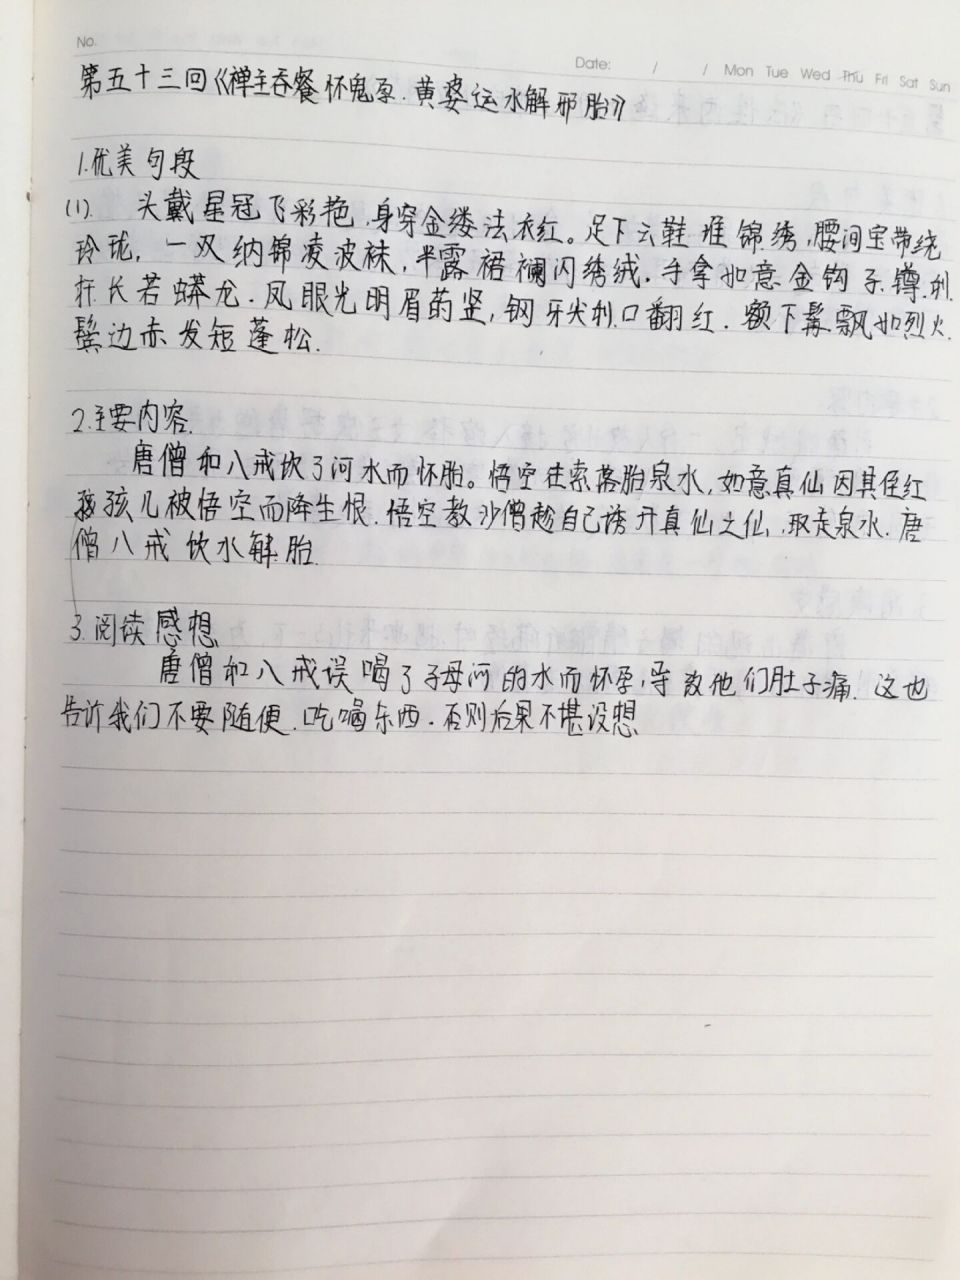 No.
Date: / / Mon Tue Wed Thu Fri Sat Sun
第五十三回《禅主吞餐怀鬼孕.黄婆运水解邪胎》
1.优美句段
(1). 头戴星冠飞彩艳,身穿金缕法衣红。足下云鞋堆锦绣,腰间宝带绕
玲珑,一双纳锦凌波袜,半露裙襕闪绣绒.手拿如意金钩子,鐏利
杆长若蟒龙.凤眼光明眉菂竖,钢牙尖利口翻红.额下髯飘如烈火.
鬓边赤发短蓬松.
2.主要内容.
唐僧和八戒饮了河水而怀胎。悟空往索落胎泉水,如意真仙因其侄红
孩儿被悟空而降生恨.悟空教沙僧趁自己诱开真仙之仙,取走泉水.唐
僧八戒饮水解胎.
3.阅读感想
唐僧和八戒误喝了子母河的水而怀孕,导致他们肚子痛.这也
告诉我们不要随便.吃喝东西.否则后果不堪设想